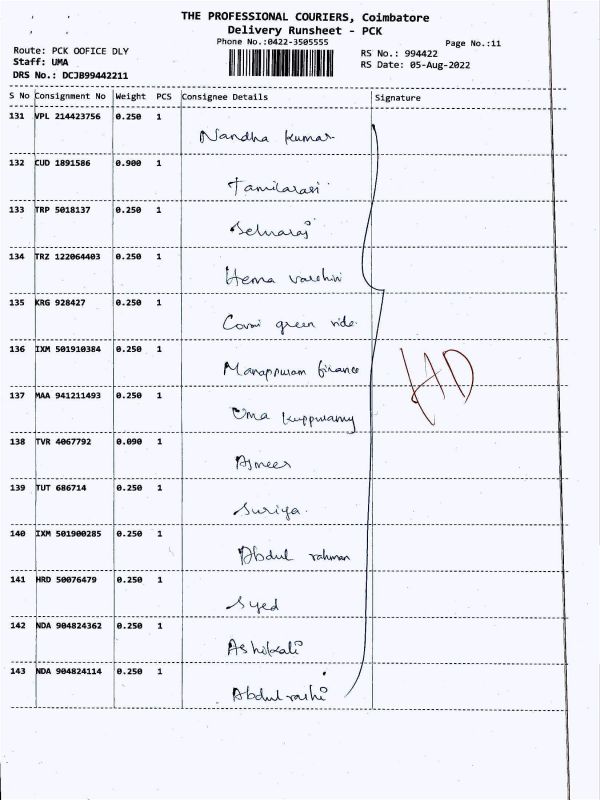 THE PROFESSIONAL COURIERS, Coimbatore
Delivery Runsheet - PCK
Phone No.:0422-3505555
Page No.:11
Route: PCK OOFICE DLY
RS No.: 994422
Staff: UMA
RS Date: 05-Aug-2022
DRS No.: DCJB99442211
S No Consignment No Weight PCS Consignee Details Signature
131 VPL 214423756 0.250 1
Nandha kumar
132 CUD 1891586 0.900 1
Tamilarasi
133 TRP 5018137 0.250 1
Selvaraj
134 TRZ 122064403 0.250 1
Hema varshini
135 KRG 928427 0.250 1
green ride
136 IXM 501910384 0.250 1
Manappuram finance
HD
137 MAA 941211493 0.250 1
Uma kuppusamy
138 TVR 4067792 0.090 1
Ajmeer
139 TUT 686714 0.250 1
Suriya
140 IXM 501900285 0.250 1
Abdul rahman
141 HRD 50076479 0.250 1
Syed
142 NDA 904824362 0.250 1
143 NDA 904824114 0.250 1
Abdul